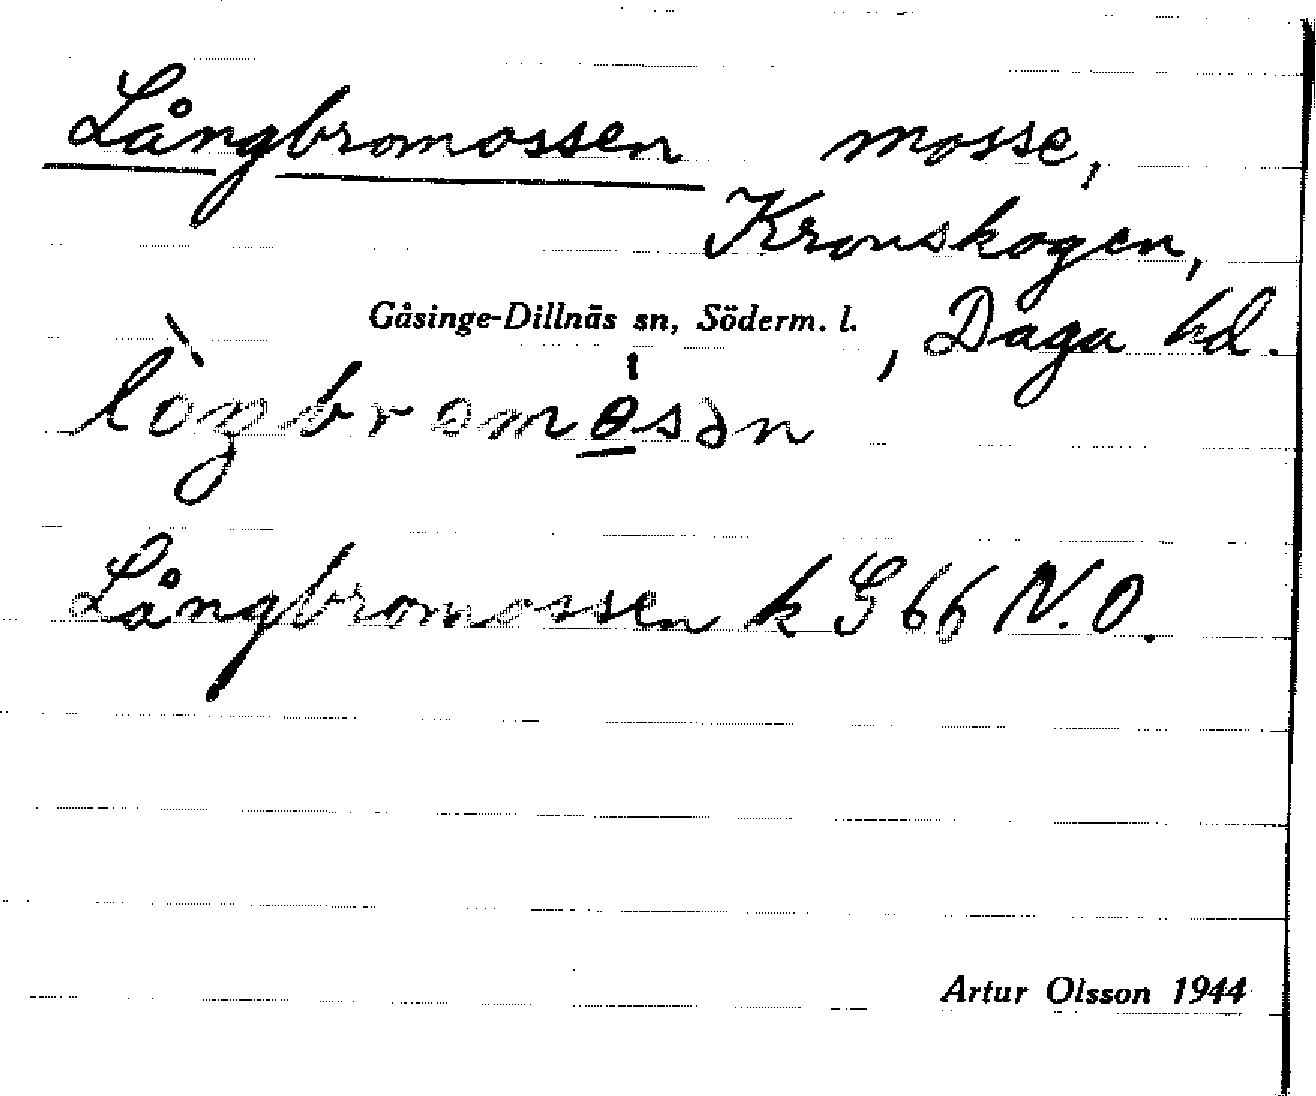 Långbromossen mosse,
Kronskogen,
Gåsinge-Dillnäs sn, Söderm. l. , Daga hd.
Långbromossen k G 66 N.O.
Artur Olsson 1944